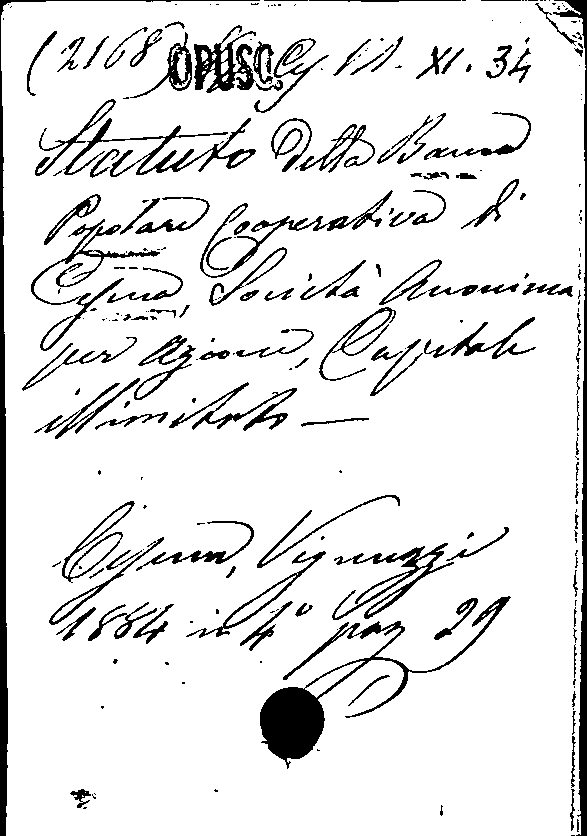 (2168) OPUSC. Cy. VII. XI. 34
Statuto della Banca
Popolare Cooperativa di
Cesena, Società Anonima
per Azioni, Capitale
illimitato —
Cesena, Vignuzzi
1884 in 4° pag 29